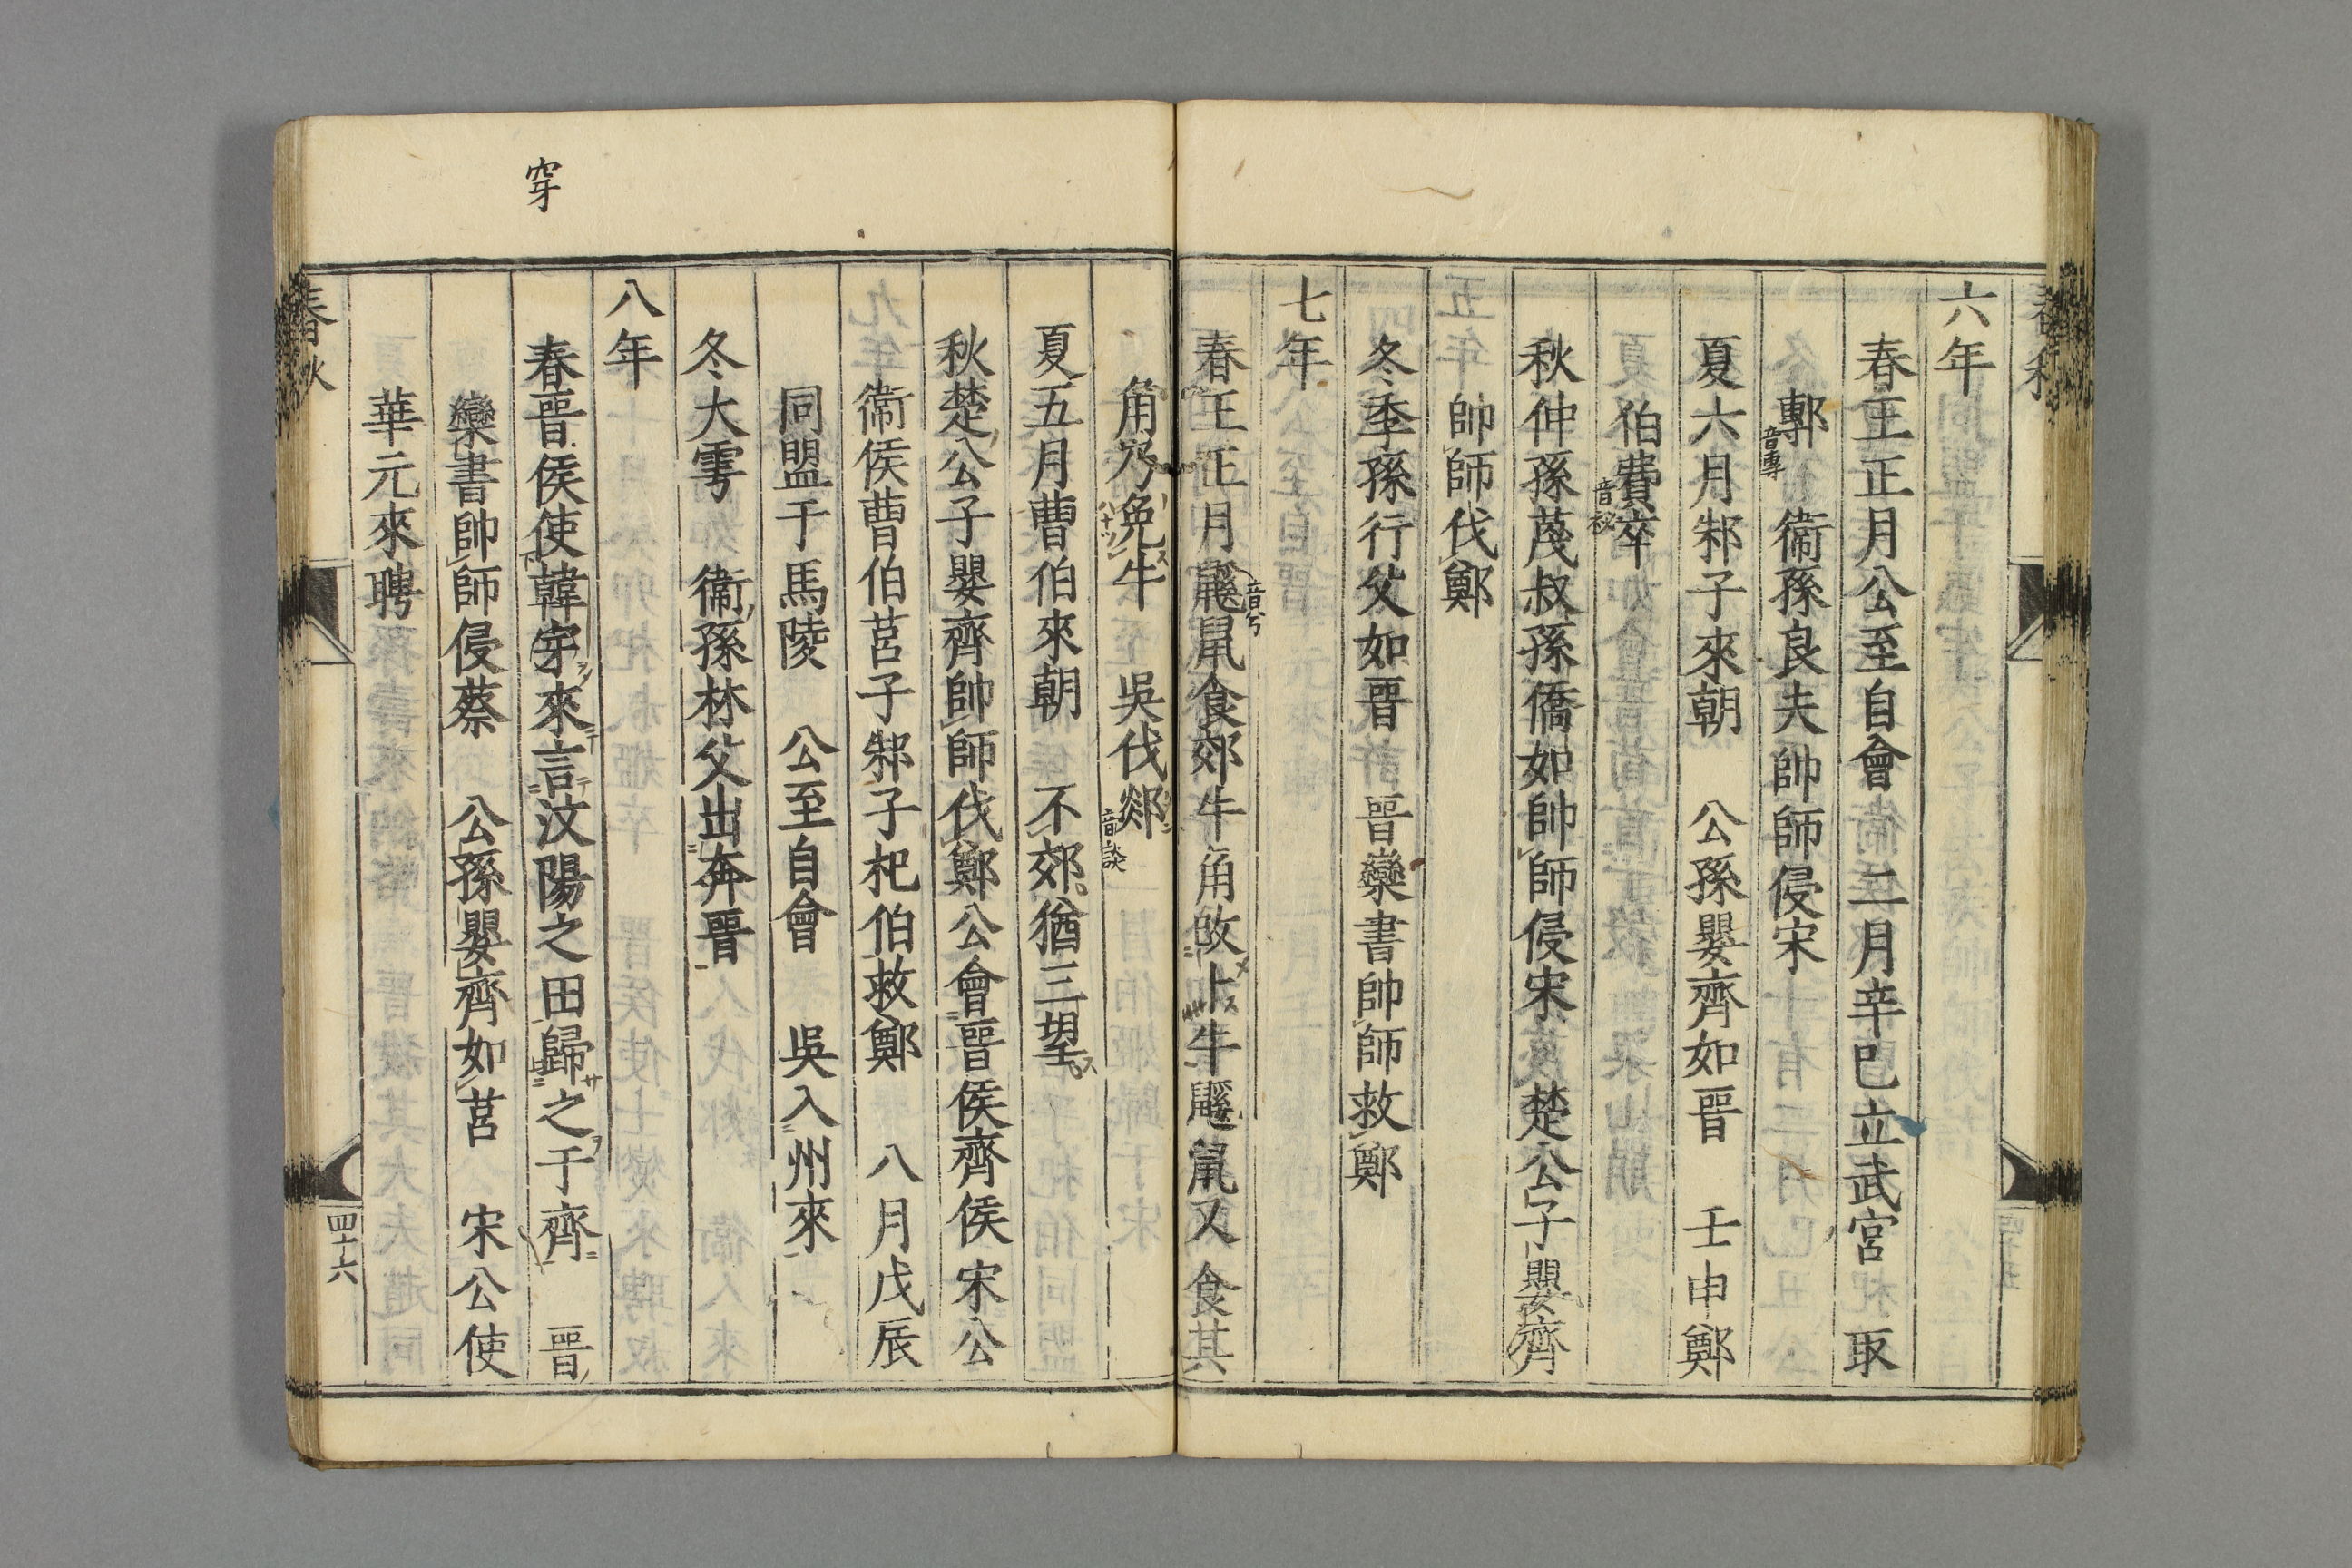 六年
春王正月公至自會 二月辛巳立武宮 取
鄟音專 衞孫良夫帥師侵宋
夏六月邾子來朝 公孫嬰齊如晉 壬申鄭
伯費音秘卒
秋仲孫蔑叔孫僑如帥師侵宋 楚公子嬰齊
帥師伐鄭
冬季孫行父如晉 晉欒書帥師救鄭
七年
春王正月鼷音兮鼠食郊牛角改卜牛鼷鼠又食其
角乃免牛 吳伐郯音談
夏五月曹伯來朝 不郊猶三望
秋楚公子嬰齊帥師伐鄭公會晉侯齊侯宋公
衞侯曹伯莒子邾子杞伯救鄭 八月戊辰
同盟于馬陵 公至自會 吳入州來
冬大雩 衞孫林父出奔晉
八年
春晉侯使韓穿來言汶陽之田歸之于齊 晉
欒書帥師侵蔡 公孫嬰齊如莒 宋公使
華元來聘
穿
春秋
四十六